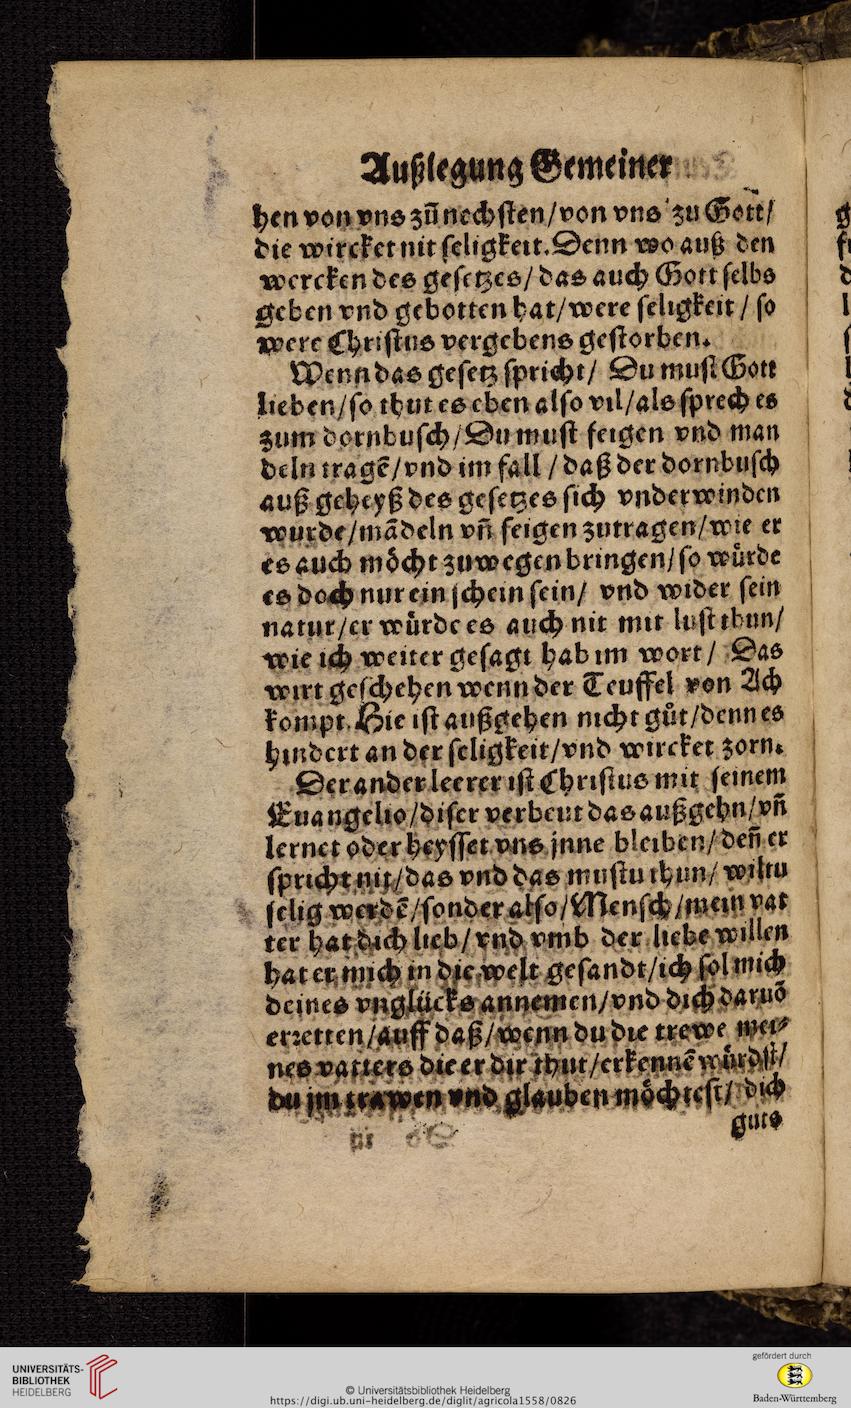 Außlegung Gemeiner
hen von vns zū nechsten/von vns zu Gott/
die wircket nit seligkeit. Denn wo auß den
wercken des gesetzes/ das auch Gott selbs
geben vnd gebotten hat/were seligkeit / so
were Christus vergebens gestorben.
Wenn das gesetz spricht/ Du must Gott
lieben/so thut es eben also vil/als sprech es
zum dornbusch/Du must feigen vnd man
deln tragē/vnd im fall / daß der dornbusch
auß geheyß des gesetzes sich vnderwinden
wurde/mādeln vñ feigen zutragen/wie er
es auch möcht zuwegen bringen/so würde
es doch nur ein schein sein/ vnd wider sein
natur/er würde es auch nit mit lust thun/
wie ich weiter gesagt hab im wort/ Das
wirt geschehen wenn der Teuffel von Ach
kompt. Hie ist außgehen nicht gůt/denn es
hindert an der seligkeit/vnd wircket zorn.
Der ander leerer ist Christus mit seinem
Euangelio/diser verbeut das außgehn/vñ
lernet oder heysset vns jnne bleiben/deñ er
spricht nit/das vnd das mustu thun/ wiltu
selig werdē/sonder also/Mensch/mein vat
ter hat dich lieb/vnd vmb der liebe willen
hat er mich in die welt gesandt/ich sol mich
deines vnglücks annemen/vnd dich daruō
erretten/auff daß/wenn du die trewe mei⸗
nes vatters die er dir thut/erkennē würdst/
du jm trawen vnd glauben möchtest/ dich
guts
UNIVERSITÄTS-
BIBLIOTHEK
HEIDELBERG
© Universitätsbibliothek Heidelberg
https://digi.ub.uni-heidelberg.de/diglit/agricola1558/0826
gefördert durch
Baden-Württemberg